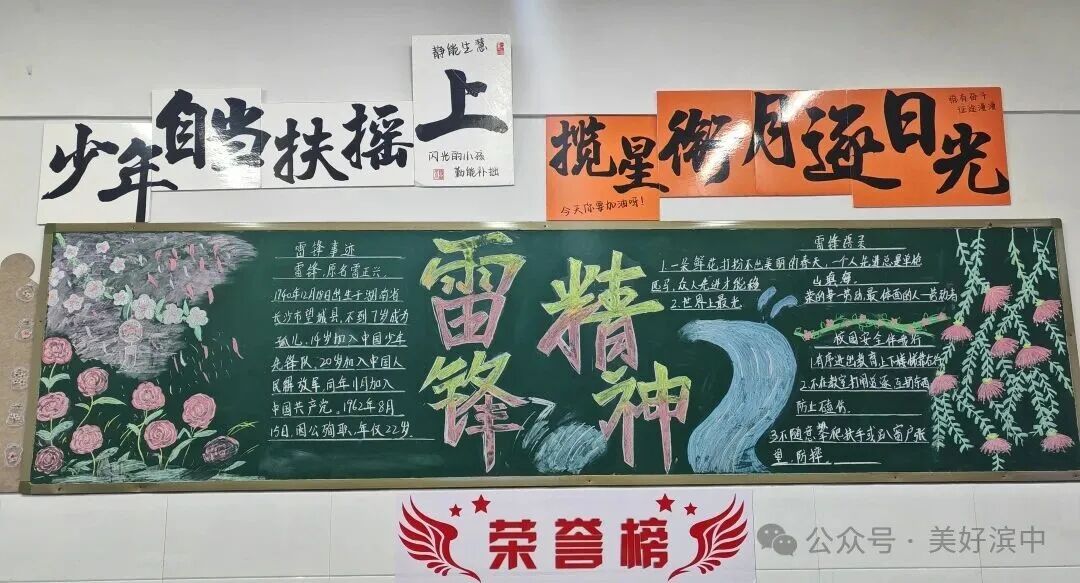 静能生慧
少年自当扶摇上
闪光的小孩
勤能补拙
揽星衔月逐日光
征途漫漫
今天你要加油呀！
雷锋事迹
雷锋，原名雷正兴，
1940年12月18日出生于湖南省
长沙市望城县，不到7岁成为
孤儿，14岁加入中国少年
先锋队，20岁加入中国人
民解放军，同年11月加入
中国共产党，1962年8月
15日，因公殉职，年仅22岁。
雷锋
精神
1.一朵鲜花打扮不出美丽的春天，一个人先进总是单枪
匹马，众人先进才能移
山填海
2.世界上最光
荣的事—劳动，最体面的人—劳动者
校园安全伴我行
2.不在教室打闹追逐
防止磕伤
3.不随意攀爬扶手或趴窗户张
望，防摔
荣誉榜
公众号·美好滨中